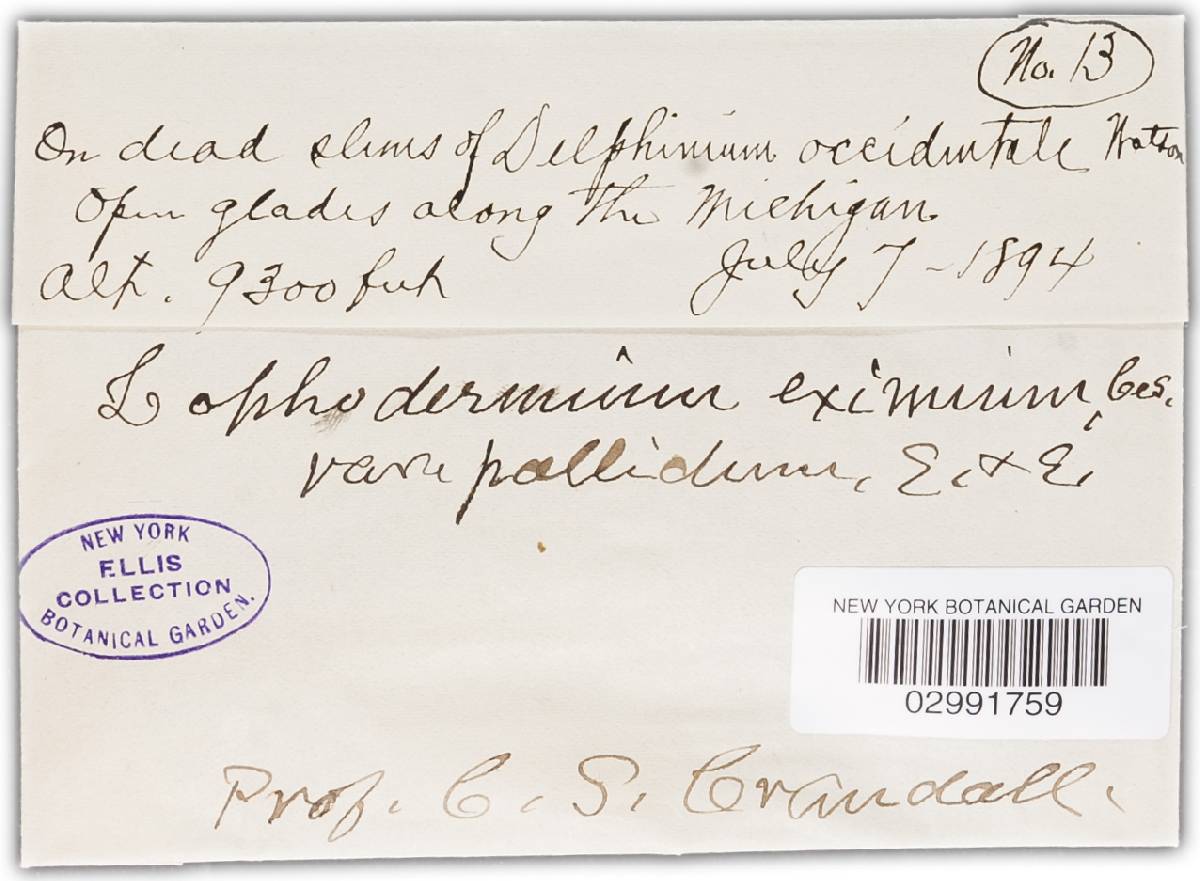 No. 13
On dead stems of Delphinium occidentale Watson
Open glades along the Michigan.
Alt. 9300 feet July 7 - 1894
Lophodermium eximium, Ces.
var. pallidum, E. & E.
NEW YORK
ELLIS
COLLECTION
BOTANICAL GARDEN.
NEW YORK BOTANICAL GARDEN
02991759
Prof. C. S. Crandall.